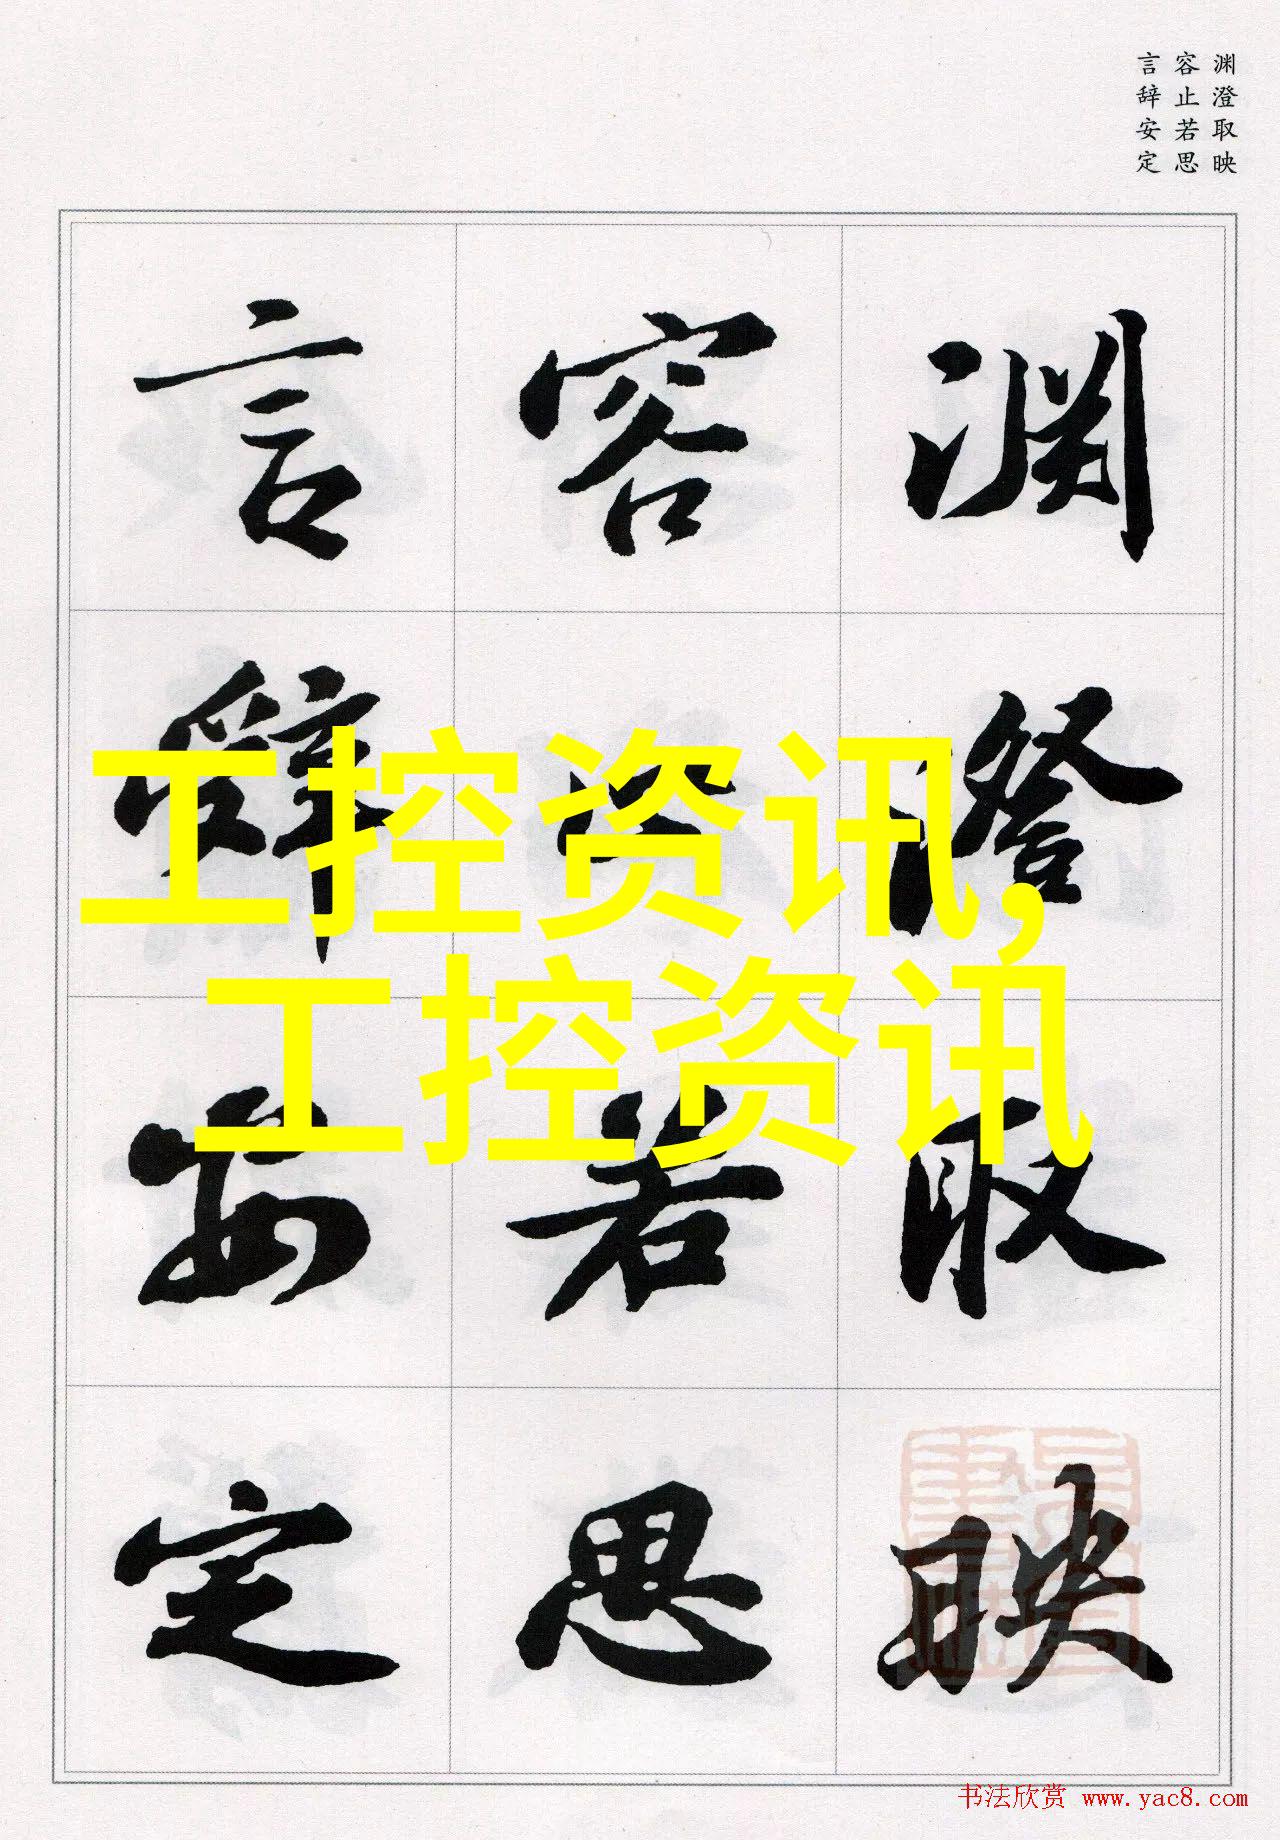 渊澄取映
容止若思
言辞安定
渊澄取映
容止若思
言辞安定
工控资讯,
工控资讯
书法欣赏 www.yac8.com